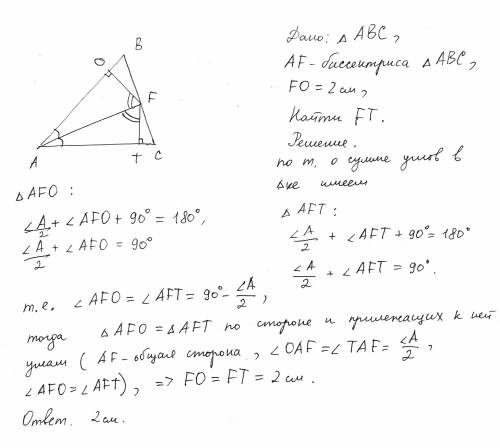 B
O
F
A
T
C
Дано: △ ABC,
AF - биссектриса △ ABC,
FO = 2 см,
Найти FT.
Решение.
по т. о сумме углов в
△ке имеем
△AFO :
∠A/2 + ∠AFO + 90° = 180°,
∠A/2 + ∠AFO = 90°
△ AFT :
∠A/2 + ∠AFT + 90° = 180°
∠A/2 + ∠AFT = 90°.
т.е. ∠AFO = ∠AFT = 90° - ∠A/2,
тогда △AFO = △AFT по стороне и прилежащих к ней
углам ( AF - общая сторона, ∠OAF = ∠TAF = ∠A/2,
∠AFO = ∠AFT), => FO = FT = 2 см.
Ответ. 2 см.